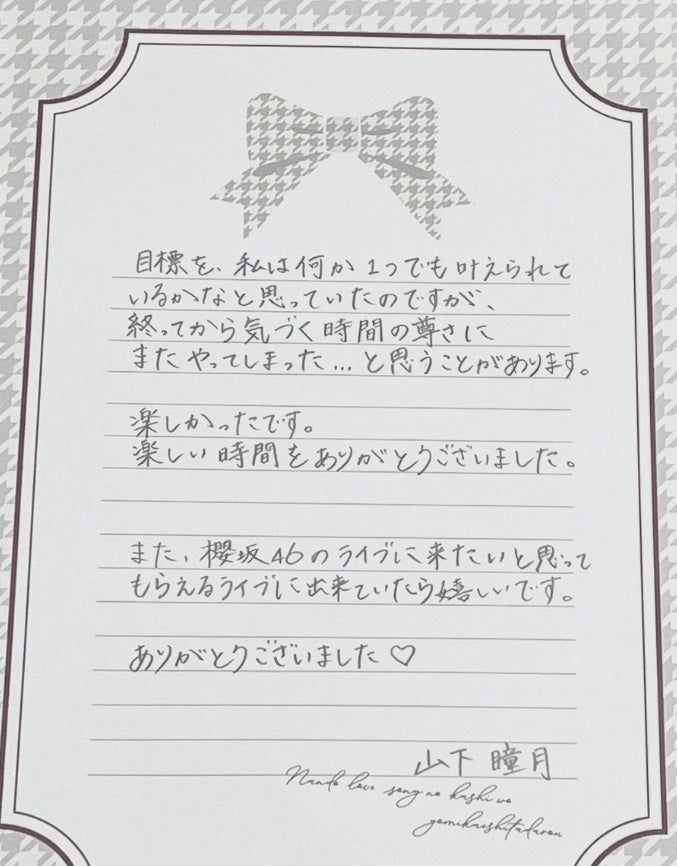 目標を、私は何か1つでも叶えられて
いるかなと思っていたのですが、
終ってから気づく時間の尊さに
またやってしまった...と思うことがあります。
楽しかったです。
楽しい時間をありがとうございました。
また、櫻坂46のライブに来たいと思って
もらえるライブに出来ていたら嬉しいです。
ありがとうございました♡
山下 瞳月
Nando love song no kashi wo
yomikaeshitadarou